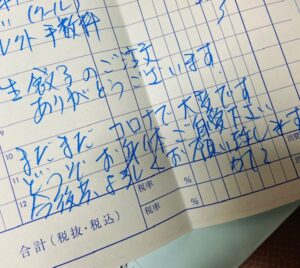 (クール)
レクト手数料
生餃子のご注文
ありがとうございます
9
10 まだまだ コロナで大変です
11 どうぞ お身体ご自愛下さい
12 今後共よろしくお願い致します
合計(税抜・税込)
税率 %
税率 %